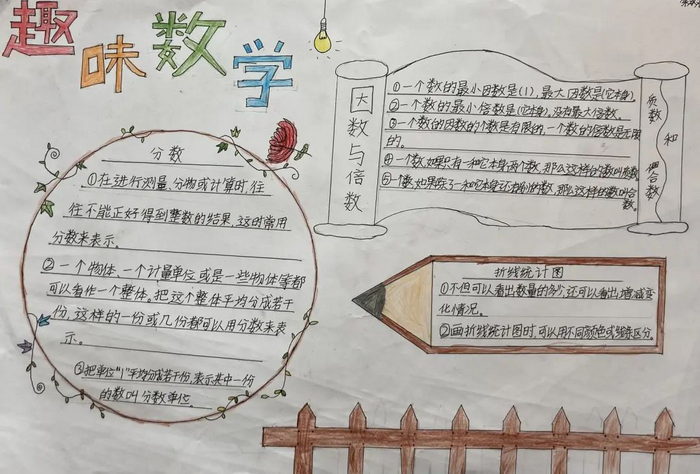 趣味数学
分数
①在进行测量、分物或计算时,往
往不能正好得到整数的结果,这时常用
分数来表示。
②一个物体、一个计量单位或是一些物体等都
可以看作一个整体。把这个整体平均分成若干
份,这样的一份或几份都可以用分数来表
示。
③把单位“1”平均分成若干份,表示其中一份
的数叫分数单位。
因数与倍数
①一个数的最小因数是(1),最大因数是(它本身)。
②一个数的最小倍数是(它本身),没有最大倍数。
③一个数的因数的个数是有限的,一个数的倍数是无限
的。
④一个数,如果只有一和它本身两个数,那么这样的数叫质数
⑤一个数,如果除了一和它本身还有别的数,那么这样的数叫合
数。
质数和合数
折线统计图
①不但可以看出数量的多少,还可以看出增减变
化情况。
②画折线统计图时,可以用不同颜色或线条区分。